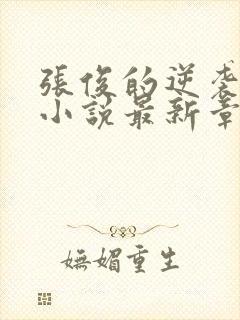 張俊的逆襲
小說最新章
嫵媚重生